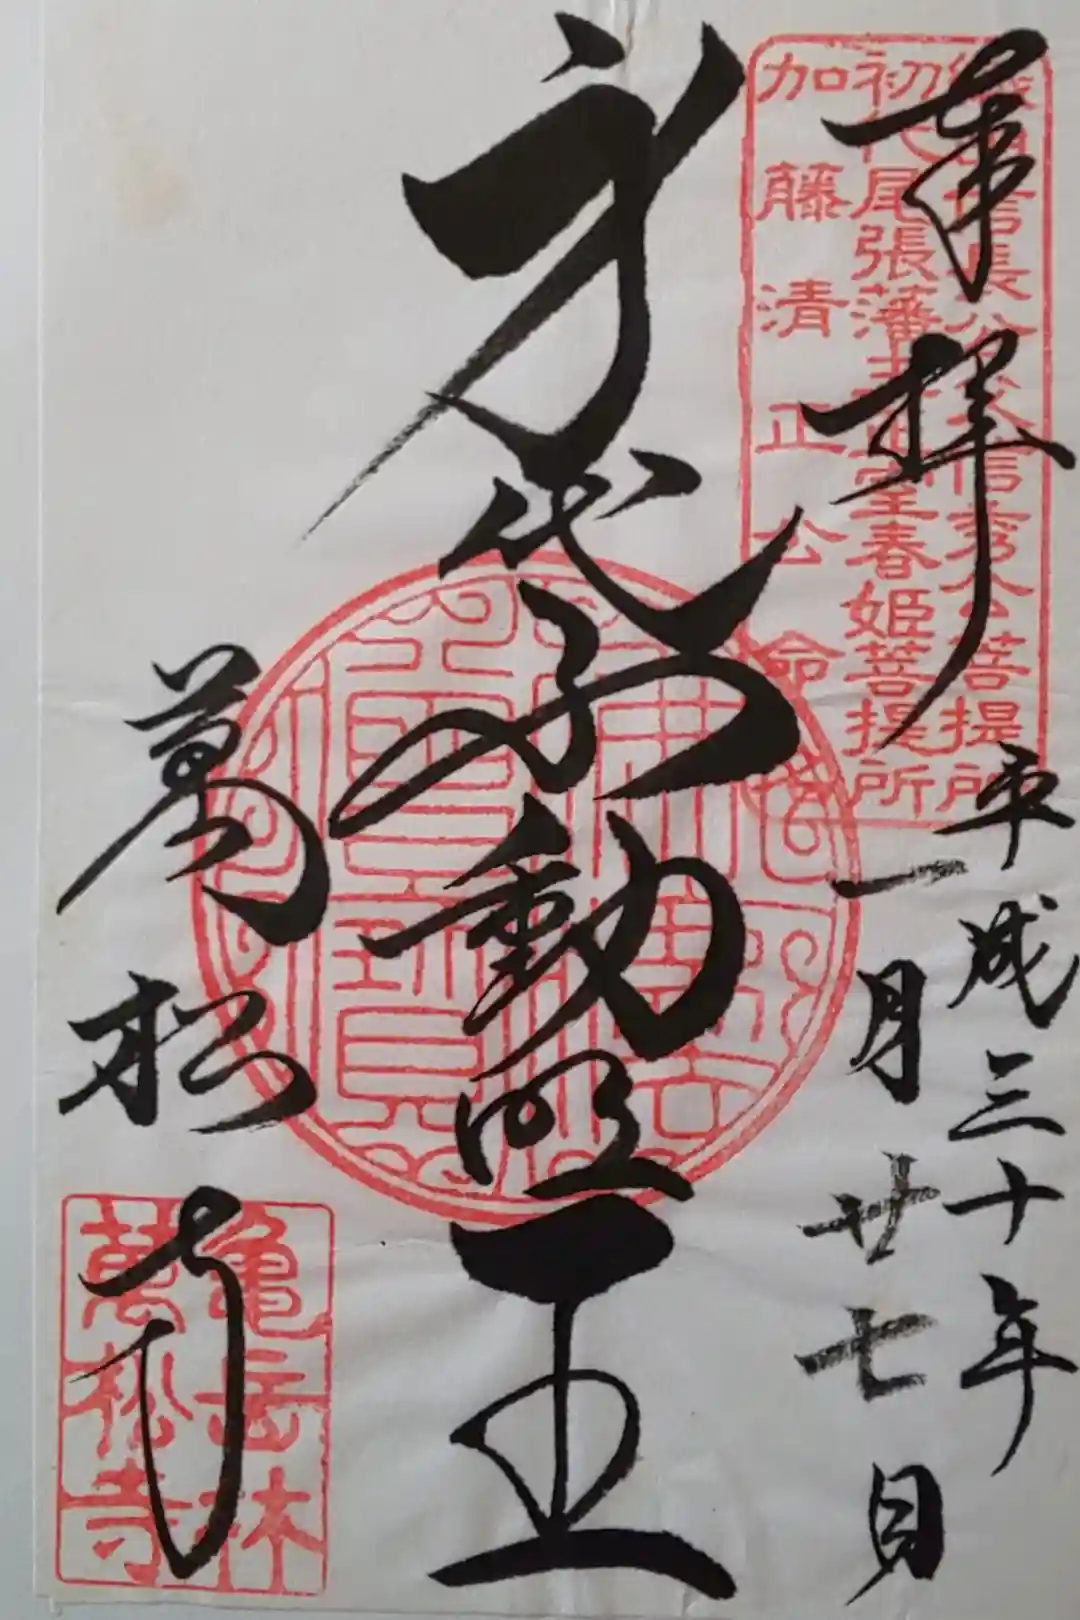 奉拝
平成三十年
一月廿七日
身代不動明王
萬松寺
織田信長公信秀公菩提所
初代尾張藩主正室春姫菩提所
加藤清正公命
亀岳林
萬松寺